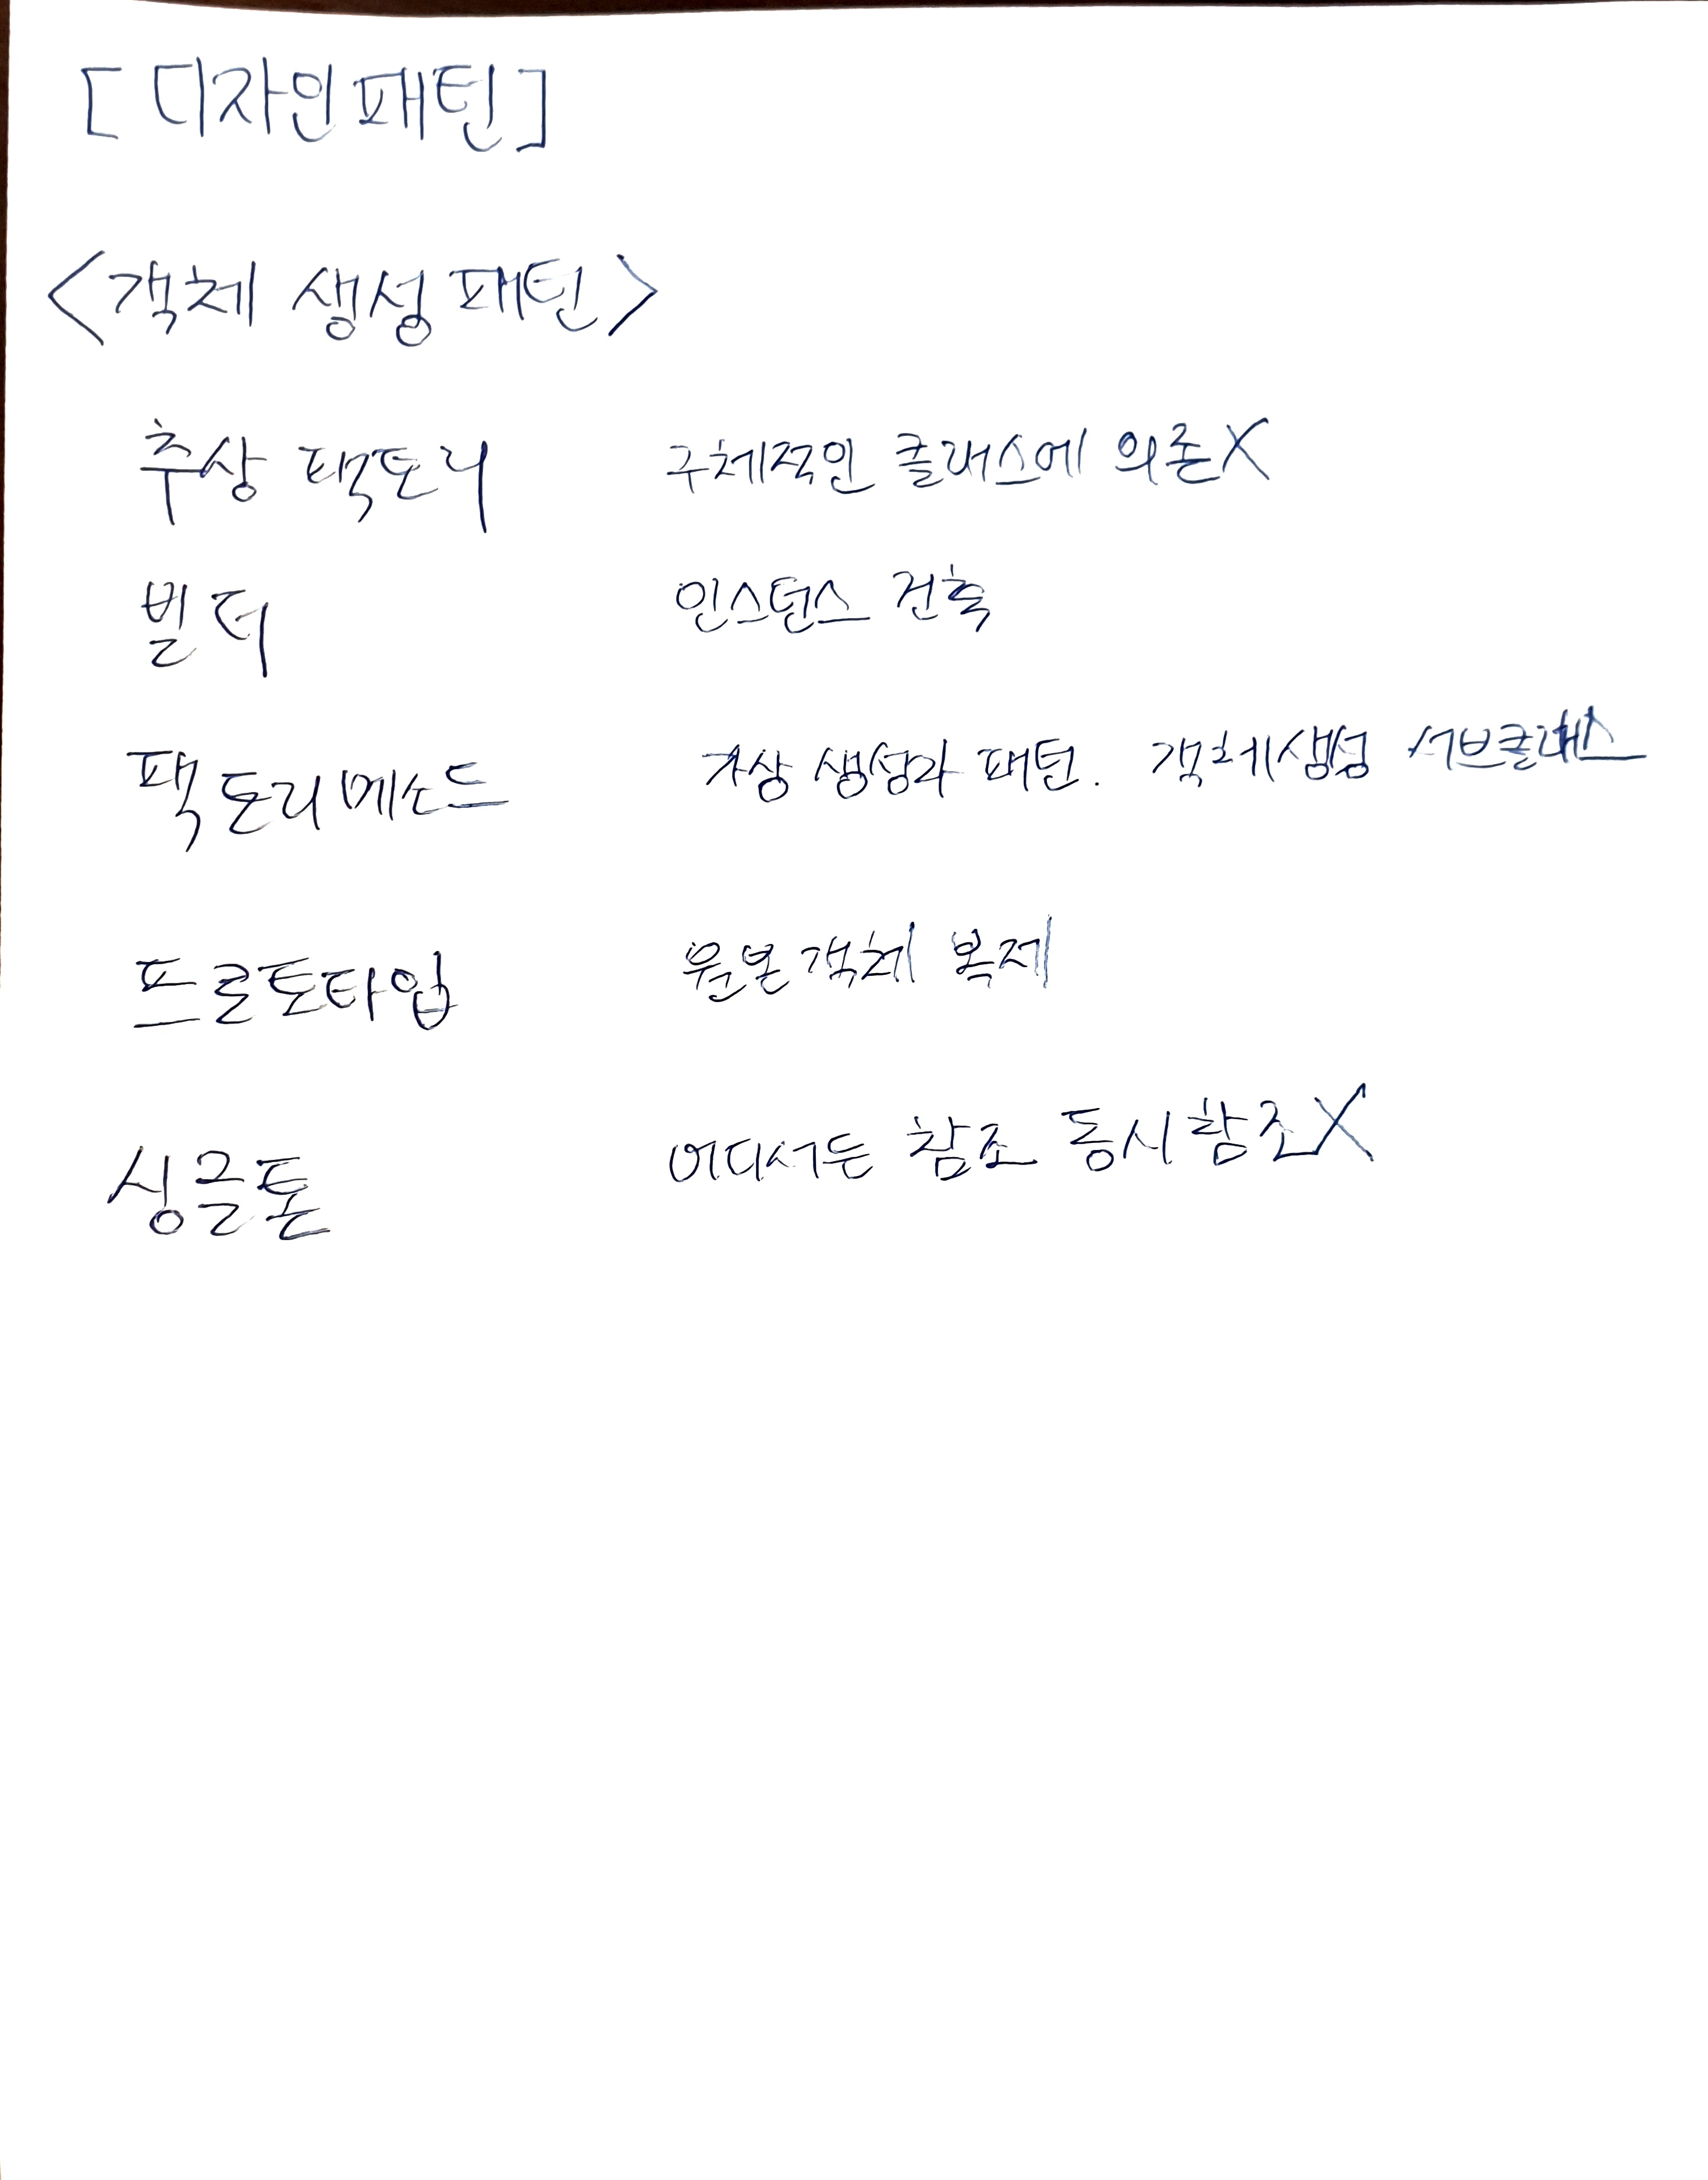 [디자인패턴]
<객체 생성패턴>
추상 팩토리 구체적인 클래스에 의존X
빌더 인스턴스 건축
팩토리메소드 가상 생성자 패턴. 객체생성 서브클래스
프로토타입 원본 객체 복제
싱글톤 어디서든 참조 동시참조X